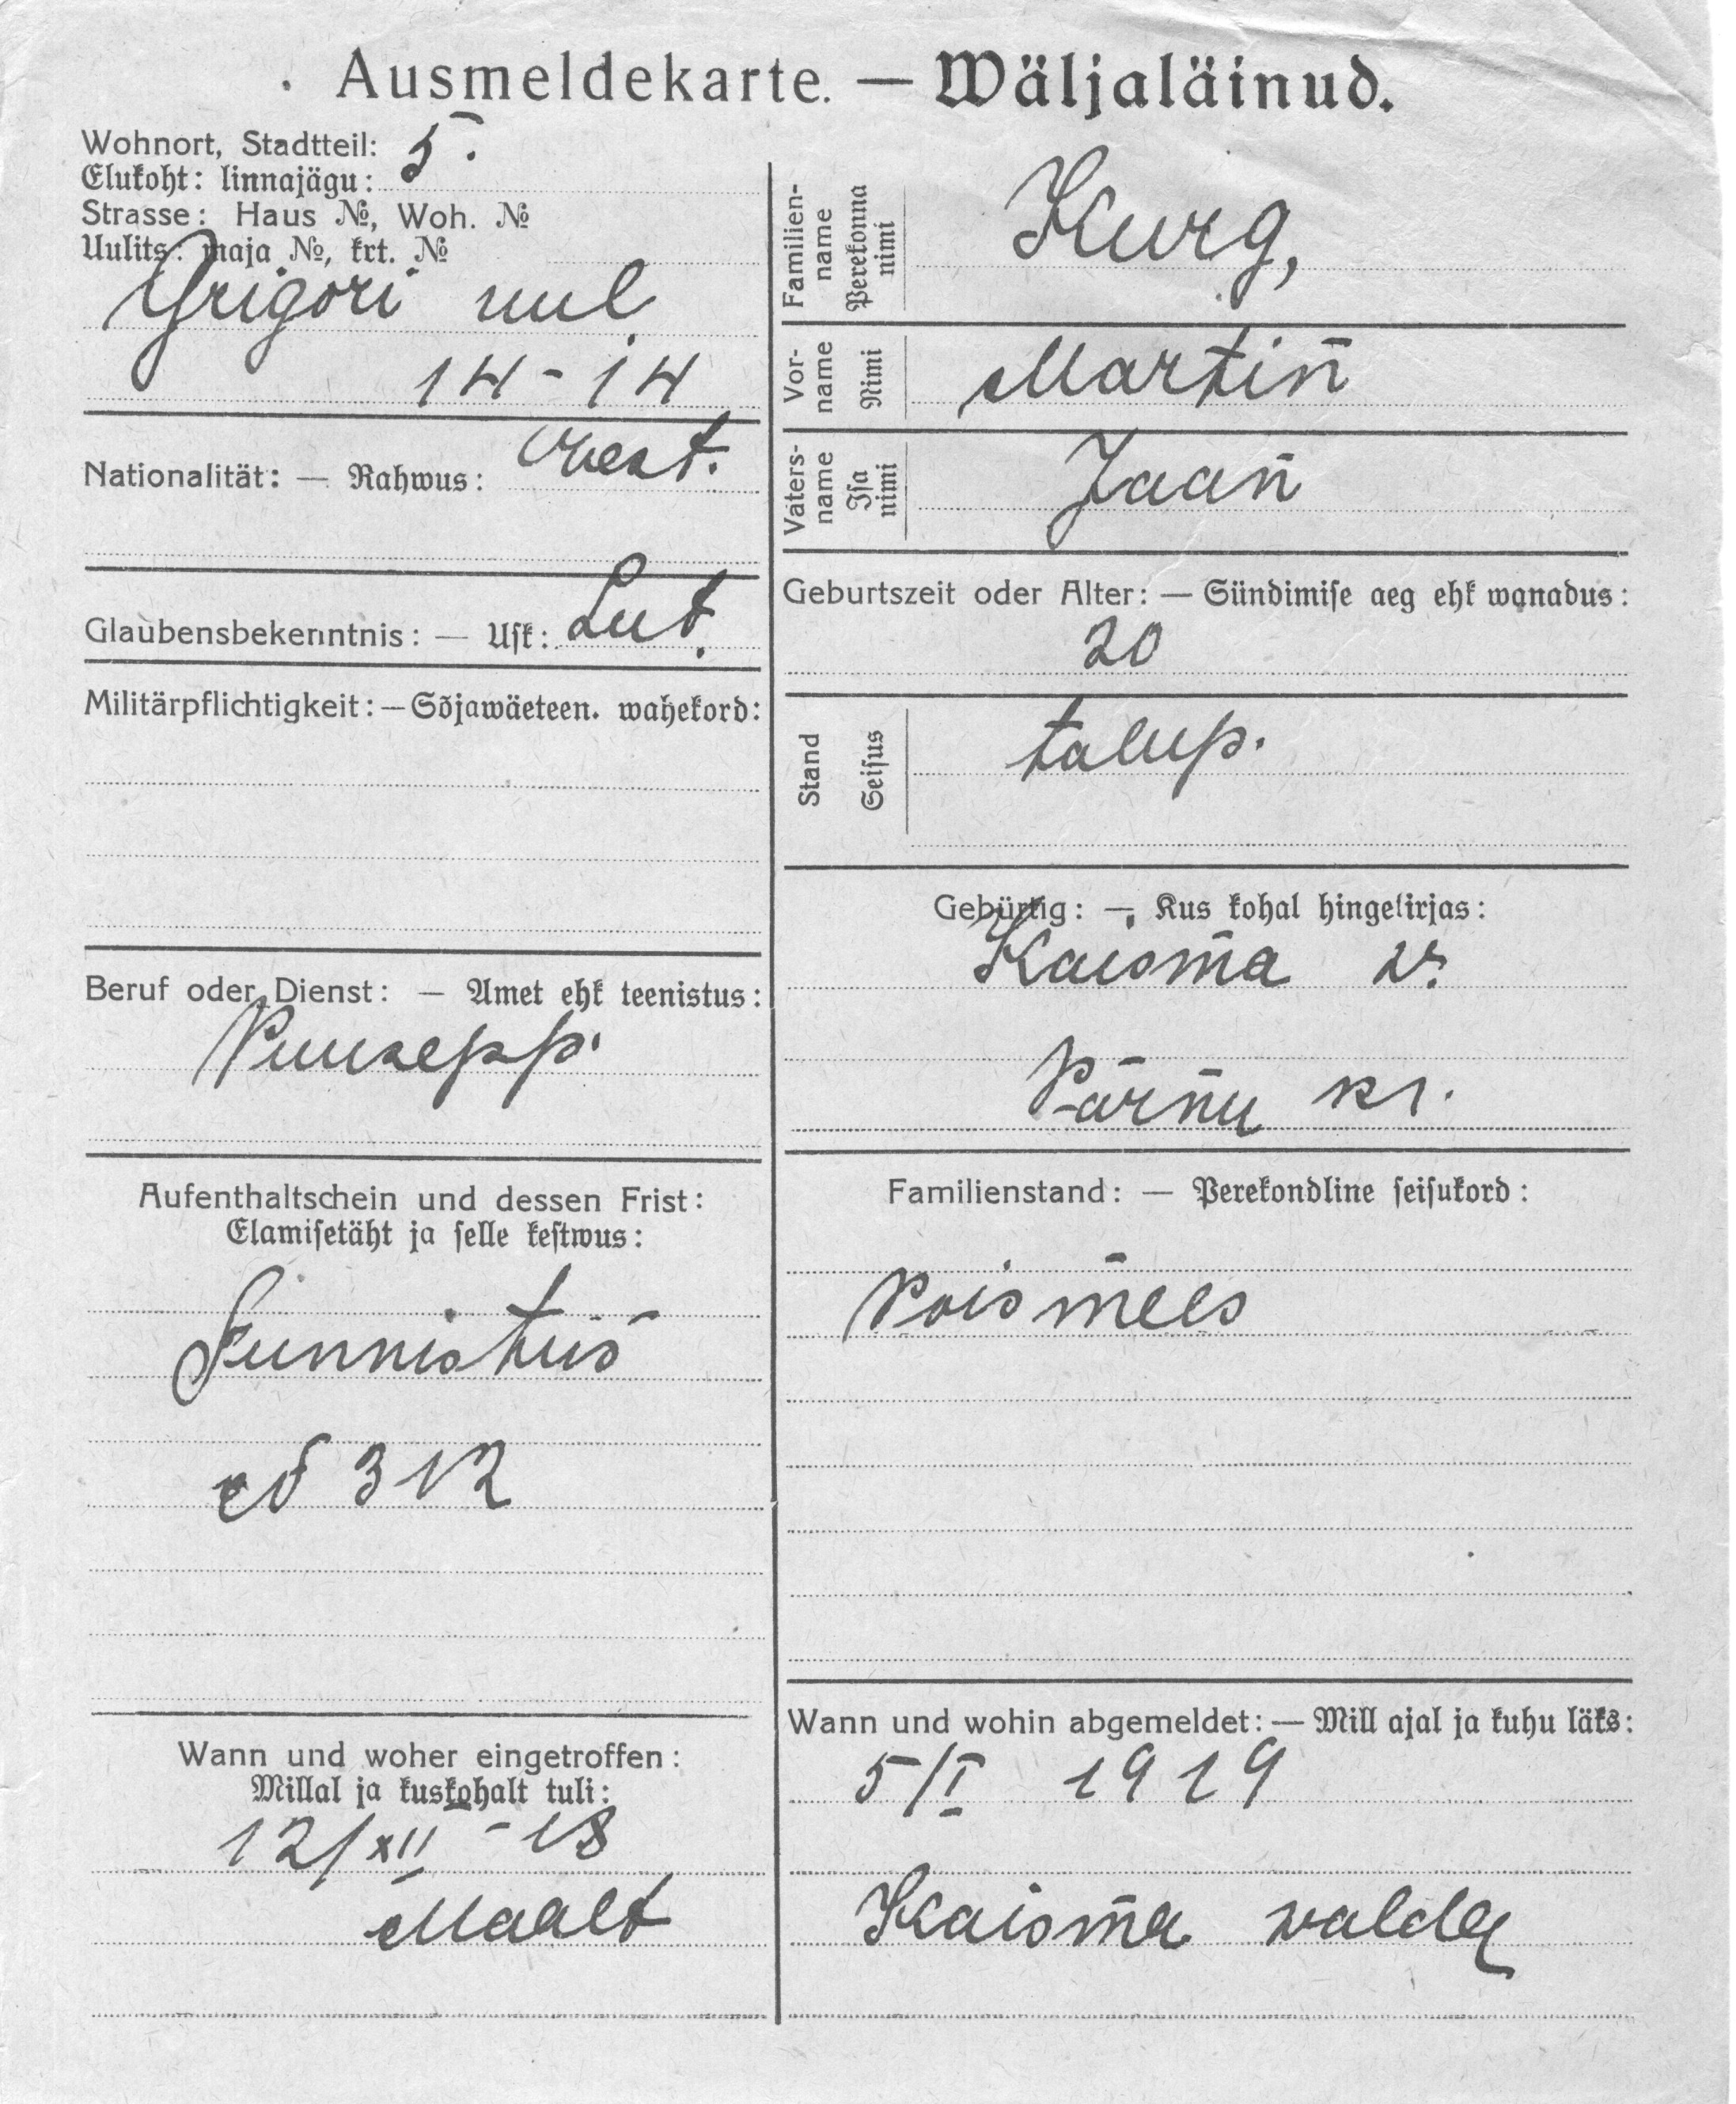 Ausmeldekarte. — Wäljaläinud.
Wohnort, Stadtteil: 5.
Elukoht: linnajägu:
Strasse: Haus №, Woh. №
Uulits: maja №, krt. №
Grigori uul.
14-14
Nationalität: — Rahwus: eest.
Glaubensbekenntnis: — Usk: Lut.
Militärpflichtigkeit: — Sõjawäeteen. wahekord:
Beruf oder Dienst: — Amet ehk teenistus:
Puusepp.
Aufenthaltschein und dessen Frist:
Elamisetäht ja selle kestwus:
Tunnistus
№ 312
Wann und woher eingetroffen:
Millal ja kuskohalt tuli:
12/XII - 18
Maalt
Familien-
name
Perekonna
nimi
Kurg,
Vor-
name
Nimi
Martin
Vaters-
name
Isa
nimi
Jaan
Geburtszeit oder Alter: — Sündimise aeg ehk wanadus:
20
Stand
Seisus
talup.
Gebürtig: — Kus kohal hingekirjas:
Kaisma v.
Pärnu kr.
Familienstand: — Perekondline seisukord:
Poismees
Wann und wohin abgemeldet: — Mill ajal ja kuhu läks:
5/I 1919
Kaisma walda